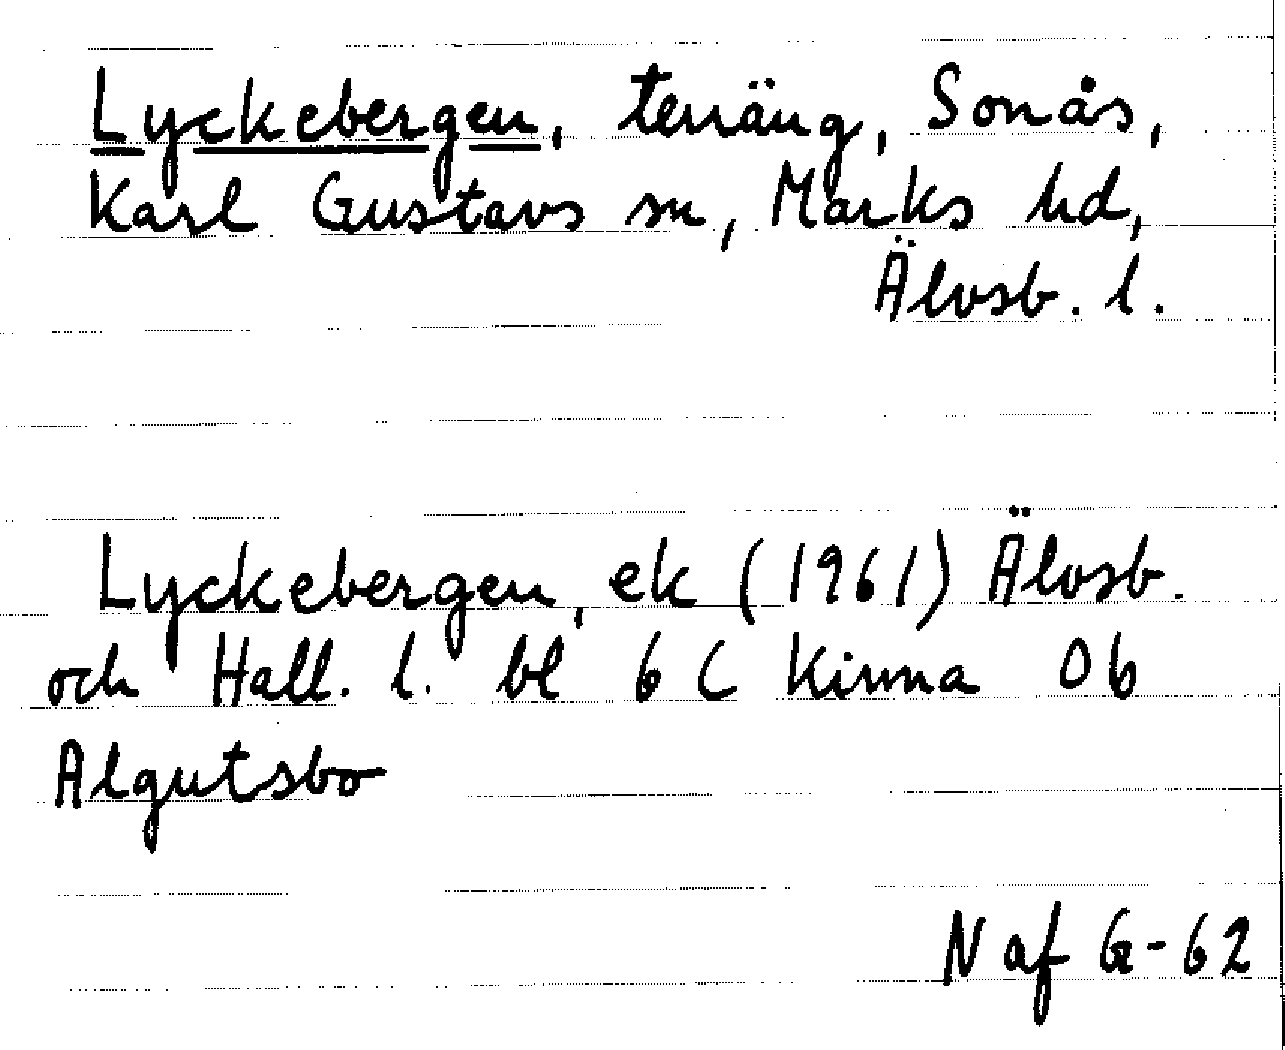 Lyckebergen, terräng, Sonås,
Karl Gustavs sn, Marks hd,
Älvsb. l.
Lyckebergen, ek (1961) Älvsb.
och Hall. l. bl 6 C Kinna 0b
Algutsbo
N af G-62